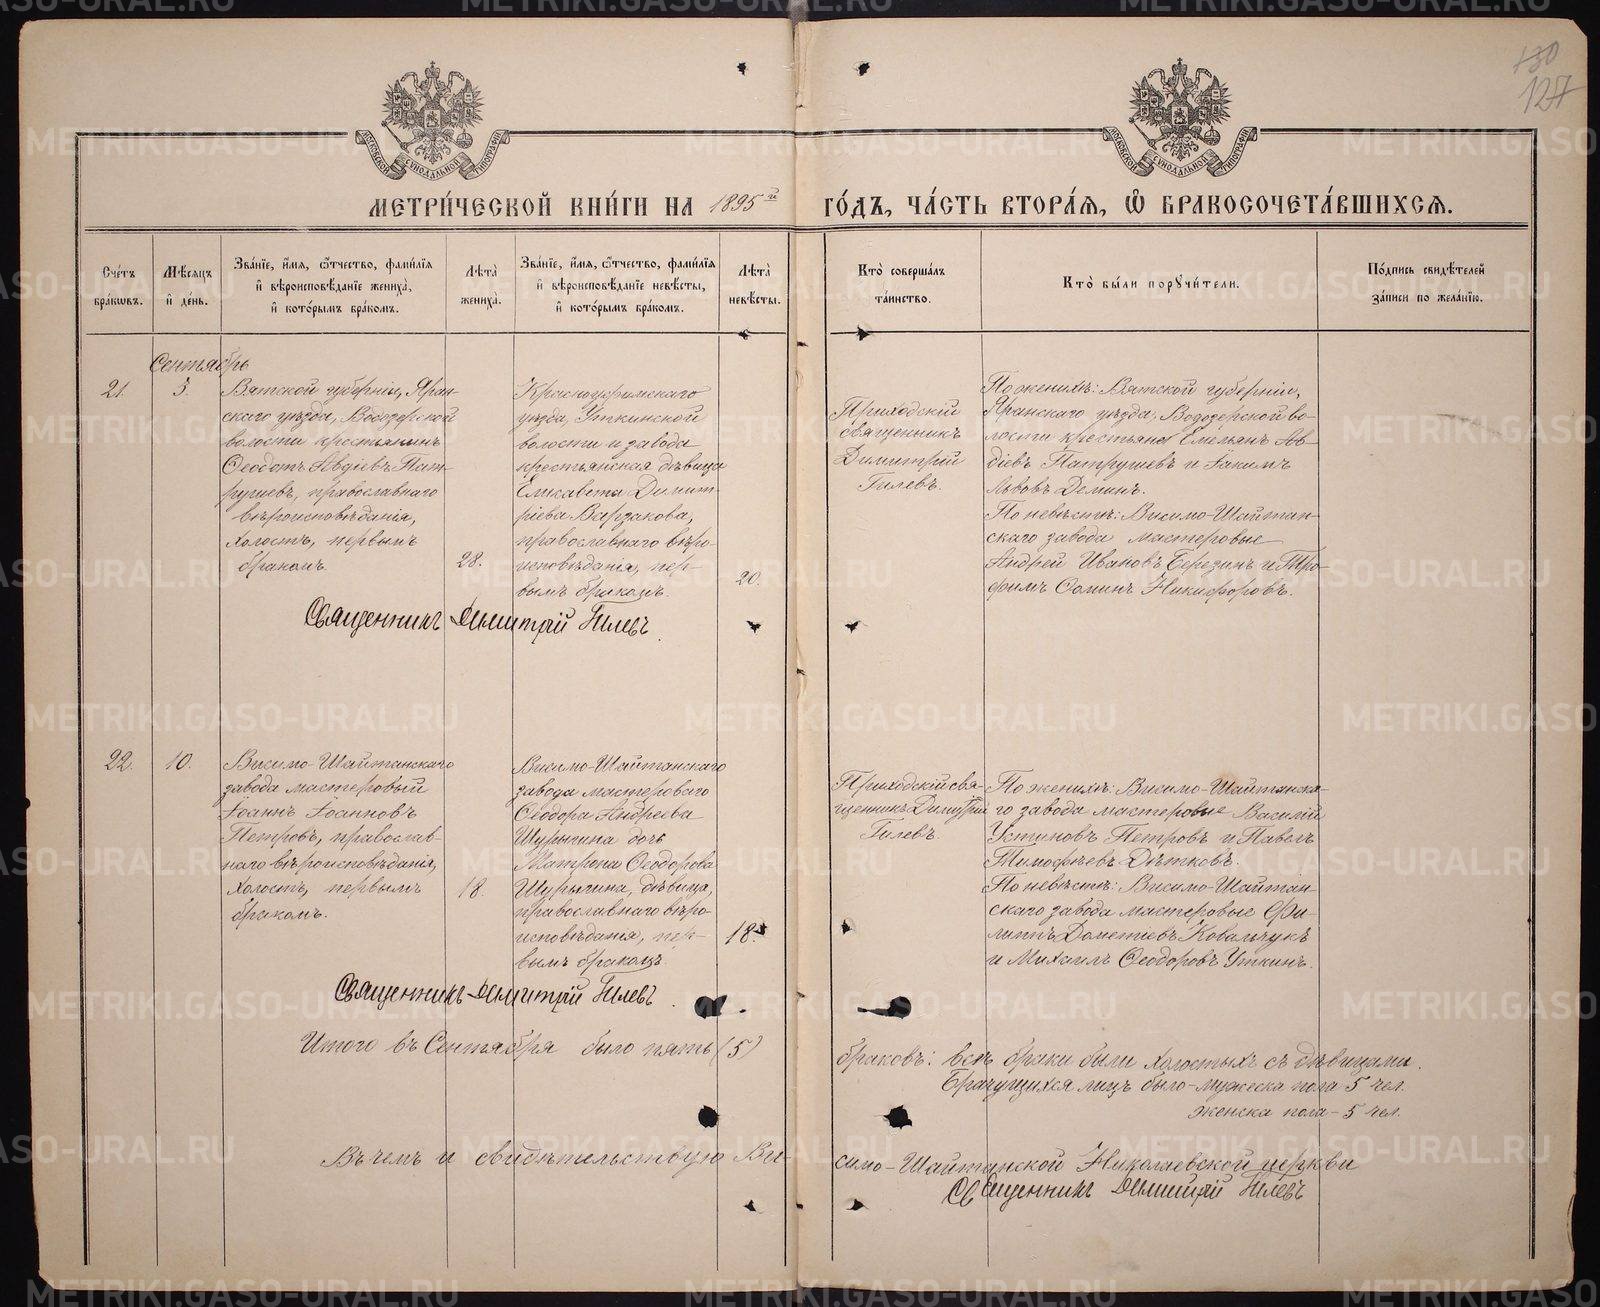 130
127
МОСКОВСКОЙ СѴНОДАЛЬНОЙ ТИПОГРАФІИ
МОСКОВСКОЙ СѴНОДАЛЬНОЙ ТИПОГРАФІИ
МЕТРИ́ЧЕСКОЙ КНИ́ГИ НА 1895й ГО́ДЪ, ЧА́СТЬ ВТОРА́Я, Ѽ БРАКОСОЧЕТА́ВШИХСЯ.
Сче́тъ
бра́кѡвъ.
Мѣ́сяцъ
и҆ де́нь.
Зва́нїе, и҆́мя, ѻ҆́тчество, фами́лїя
и҆ вѣроисповѣ́данїе жениха̀,
и҆ кото́рымъ бра́комъ.
Лѣ́та
жениха̀.
Зва́нїе, и҆́мя, ѻ҆́тчество, фами́лїя
и҆ вѣроисповѣ́данїе невѣ́сты,
и҆ кото́рымъ бра́комъ.
Лѣ́та
невѣ́сты.
Кто̀ соверша́лъ
та́инство.
Кто̀ бы́ли порꙋчи́тели.
По́дпись свидѣ́телей
за́писи по жела́нїю.
Сентябрь
21.
3.
Вятской губерніи, Яран-
скаго уѣзда, Водозерской
волости крестьянинъ
Ѳеодотъ Авдіевъ Пат-
рушевъ, православнаго
вѣроисповѣданія,
холостъ, первымъ
бракомъ.
28.
Красноуфимскаго
уѣзда, Уткинской
волости и завода
крестьянская дѣвица
Елисавета Димит-
ріева Варзакова,
православнаго вѣро-
исповѣданія, пер-
вымъ бракомъ.
20.
Приходскій
священникъ
Димитрій
Гилевъ.
По женихѣ: Вятской губерніи,
Яранскаго уѣзда, Водозерской во-
лости крестьяне Емельянъ Ав-
діевъ Патрушевъ и Іакимъ
Львовъ Деминъ.
По невѣстѣ: Висимо-Шайтан-
скаго завода мастеровые
Андрей Ивановъ Березинъ и Тро-
фимъ Саминъ Никифоровъ.
Священникъ Димитрій Гилевъ.
22.
10.
Висимо-Шайтанскаго
завода мастеровый
Іоаннъ Іоанновъ
Петровъ, православ-
наго вѣроисповѣданія,
холостъ, первымъ
бракомъ.
18.
Висимо-Шайтанскаго
завода мастероваго
Ѳеодора Андреева
Шурыгина дочь
Матрона Ѳеодорова
Шурыгина, дѣвица,
православнаго вѣро-
исповѣданія, пер-
вымъ бракомъ.
18.
Приходскій свя-
щенникъ Димитрій
Гилевъ.
По женихѣ: Висимо-Шайтанска-
го завода мастеровые Василій
Устиновъ Петровъ и Павелъ
Тимофѣевъ Дѣтковъ.
По невѣстѣ: Висимо-Шайтан-
скаго завода мастеровые Фи-
липпъ Дометіевъ Ковальчукъ
и Михаилъ Ѳеодоровъ Уткинъ.
Священникъ Димитрій Гилевъ.
Итого въ Сентября было пять (5) браковъ: всѣ браки были холостыхъ съ дѣвицами.
Брачущихся лицъ было - мужеска пола - 5 чел.
женска пола - 5 чел.
Въ чемъ и свидѣтельствую Ви-симо-Шайтанской Николаевской церкви
Священникъ Димитрій Гилевъ
METRIKI.GASO-URAL.RU